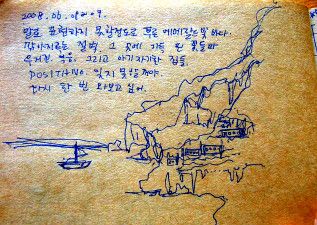 2008. 06.
말로 표현하지 못할정도로 푸른 에메랄드빛 바다.
깎아지르는 절벽, 그 곳에 가득 핀 꽃들과
그리고 아기자기한 집들
POSITANO. 잊지 못할꺼야.
다시 한 번 와보고 싶어.